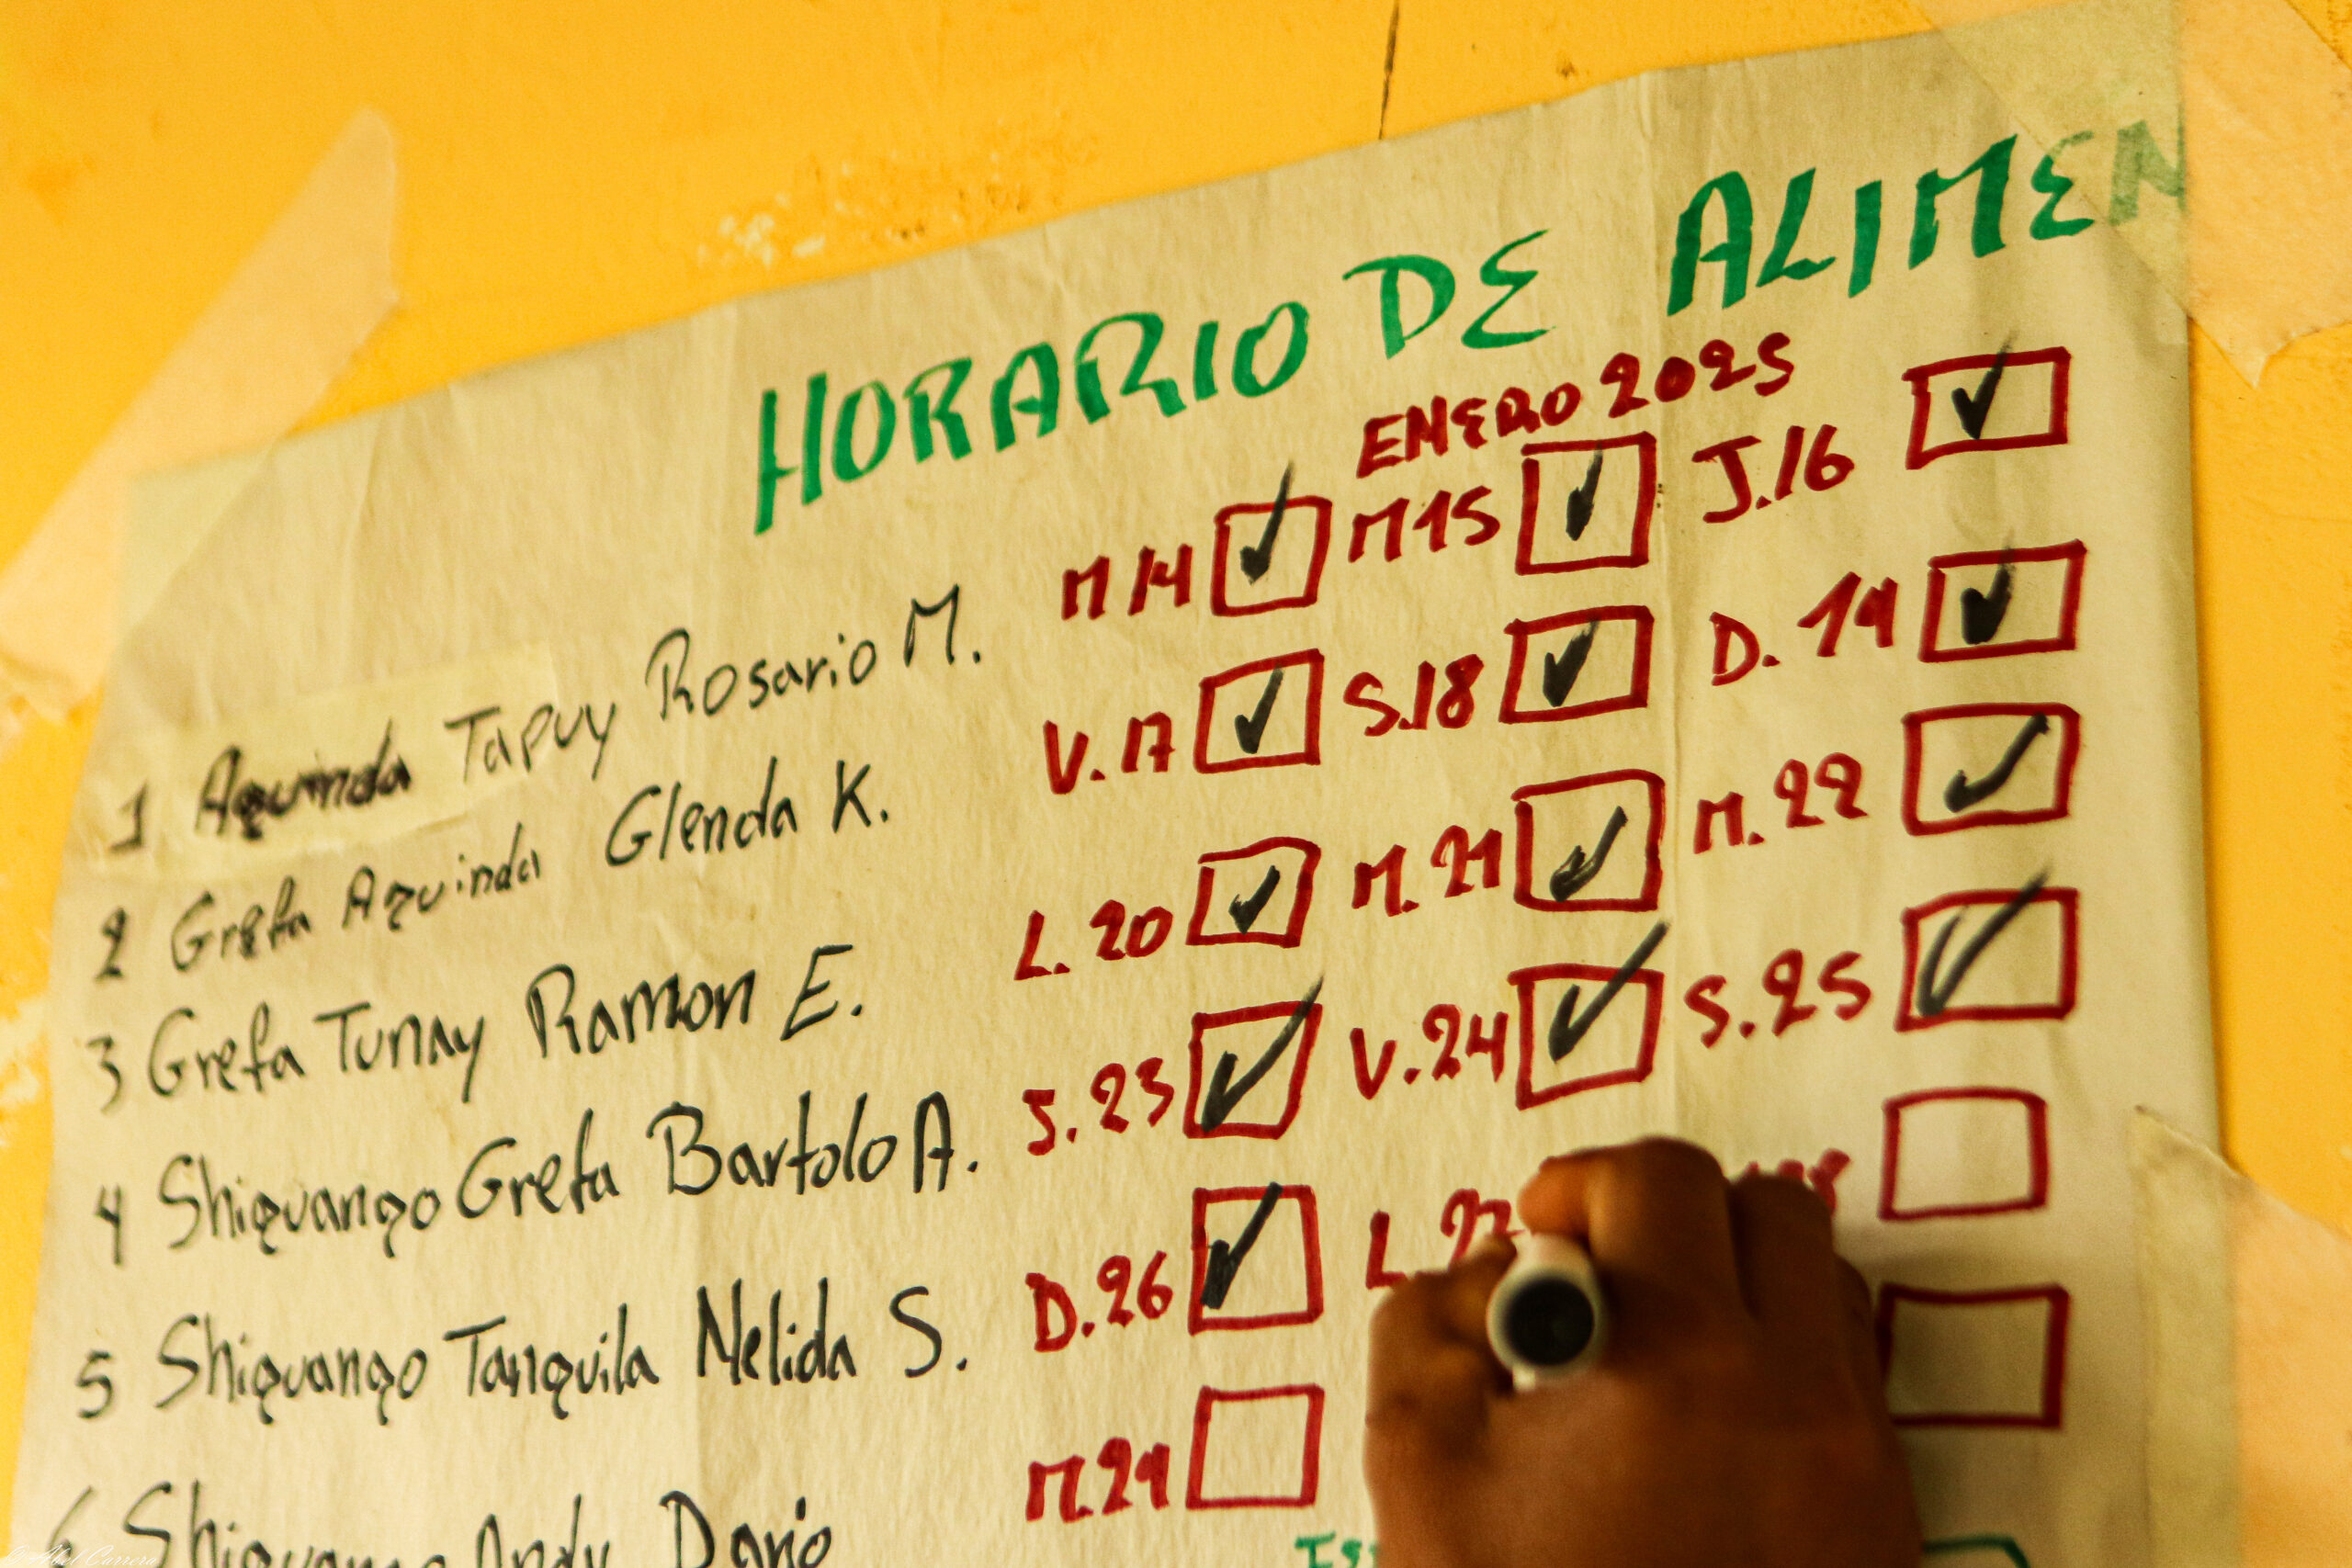 HORARIO DE ALIMEN
ENERO 2025
1 Aguinda Tapuy Rosario M. M 14 M 15 J. 16
2 Grefa Aguinda Glenda K. V. 17 S. 18 D. 19
3 Grefa Tunay Ramon E. L. 20 M. 21 M. 22
4 Shiguango Grefa Bartolo A. J. 23 V. 24 S. 25
5 Shiguango Tanguila Nelida S. D. 26 L. 27
6 Shiguango Andy Dario M. 29
Abel Carrera